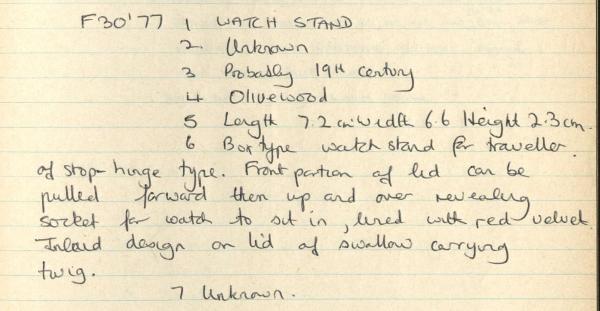 F30'77 1 WATCH STAND
2. Unknown
3 Probably 19th century
4 Olivewood
5 Length 7.2cm Width 6.6 Height 2.3cm.
6 Box type watch stand for traveller.
of stop-hinge type. Front portion of lid can be
pulled forward then up and over revealing
socket for watch to sit in, lined with red velvet.
Inlaid design on lid of swallow carrying
twig.
7 Unknown.